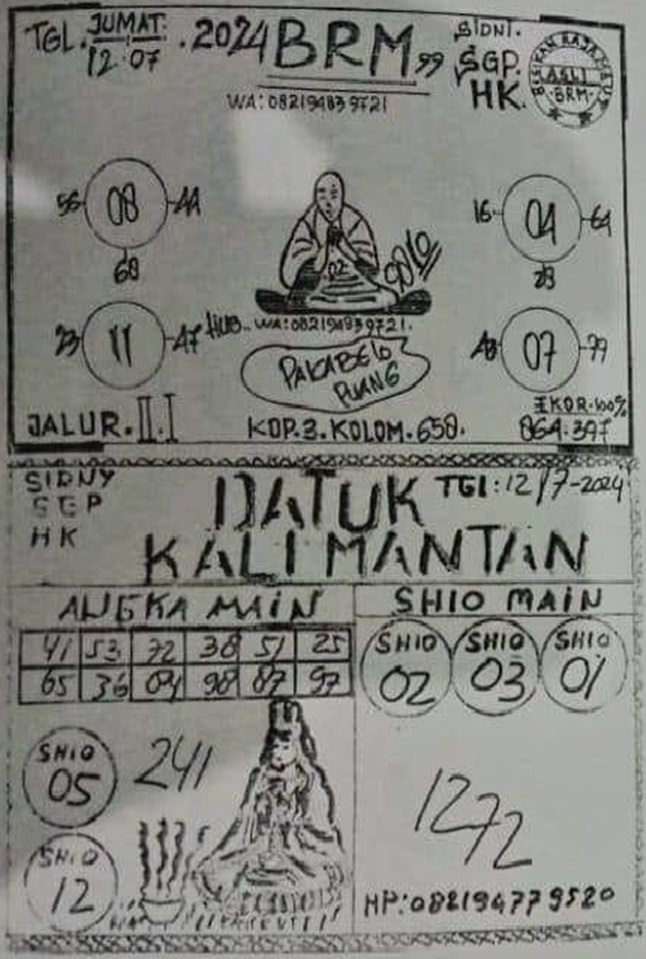 TGL. JUMAT. 12.07 .2024 BRM 99
SIDNI.
SGP.
HK.
ASLI
BRM
WA: 082194839721
08
56
44
68
04
16
64
02
11
23
47
HUB.. WA: 082194839721.
PAKABELO
PUANG
07
79
JALUR. II. I
KOP. 3. KOLOM. 658.
EKOR. 100%
864.397
SIDNY
SGP
HK
DATUK
KALIMANTAN
TGl: 12/7-2024
ANGKA MAIN
SHIO MAIN
41 53 72 38 51 25
65 36 04 98 87 97
SHIO
02
SHIO
03
SHIO
01
SHIO
05
241
SHIO
12
1272
HP: 082194779520